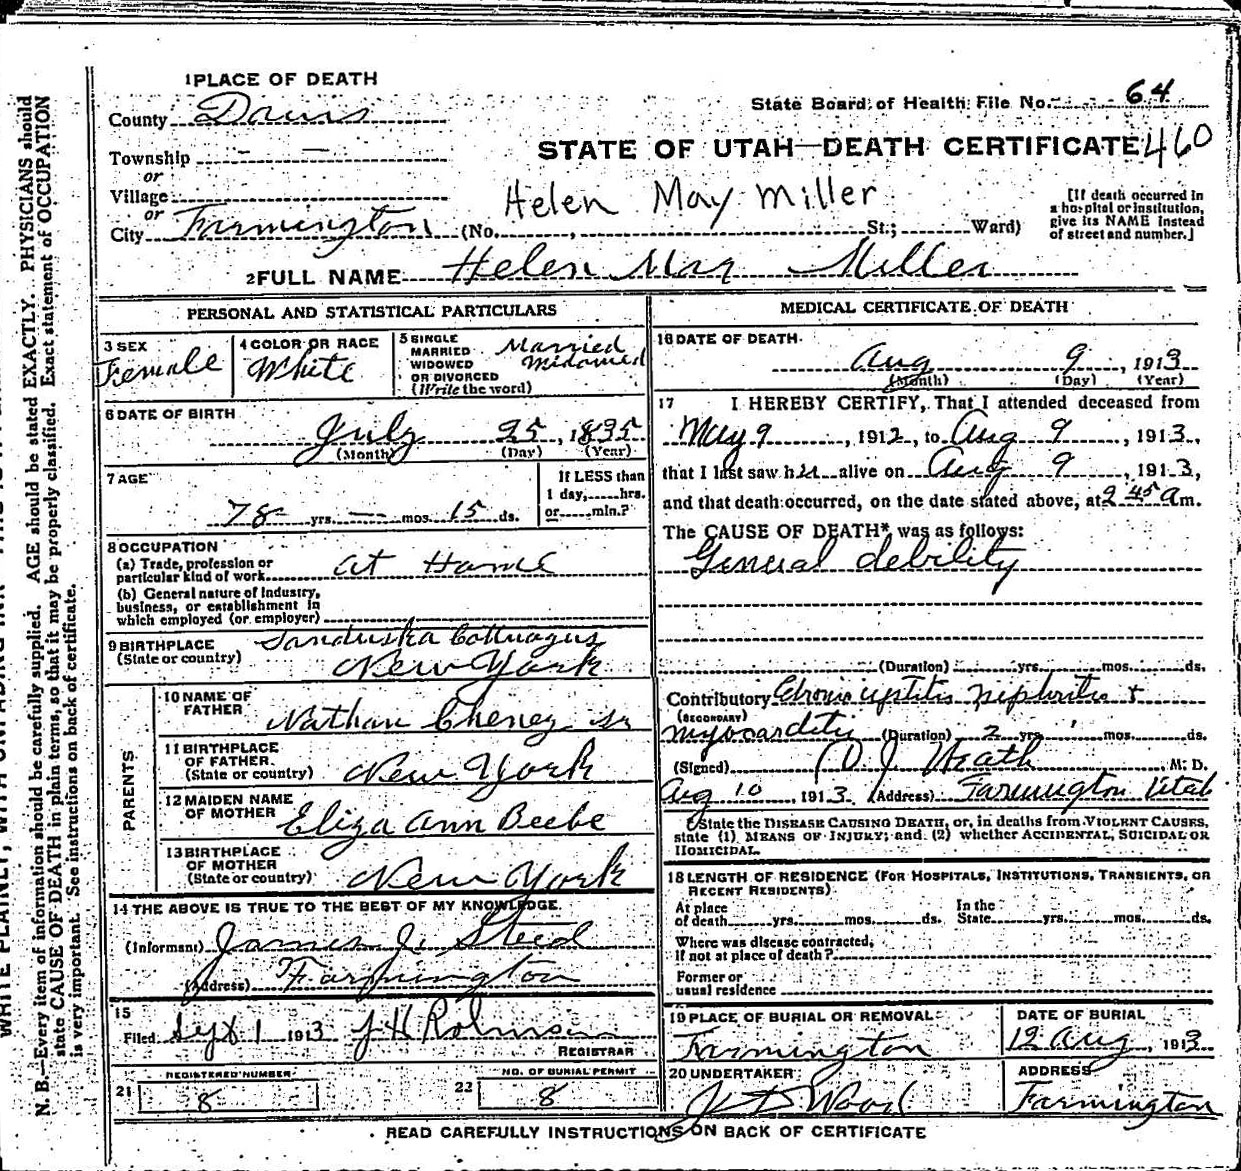 1 PLACE OF DEATH
County Davis
State Board of Health File No. 64
Township — —
STATE OF UTAH—DEATH CERTIFICATE 460
or
Village
or
City Farmington (No. , St.; Ward)
Helen May Miller
[If death occurred in
a hospital or institution,
give its NAME instead
of street and number.]
2 FULL NAME Helen Mar Miller
PERSONAL AND STATISTICAL PARTICULARS
3 SEX
Female
4 COLOR OR RACE
White
5 SINGLE
MARRIED
WIDOWED
OR DIVORCED
(Write the word)
Married
Widowed
6 DATE OF BIRTH
July 25, 1835
(Month) (Day) (Year)
7 AGE
78 yrs. — mos. 15 ds.
If LESS than
1 day, hrs.
or min.?
8 OCCUPATION
(a) Trade, profession or
particular kind of work At Home
(b) General nature of Industry,
business, or establishment in
which employed (or employer)
9 BIRTHPLACE
(State or country)
New York
PARENTS
10 NAME OF
FATHER
Nathan Cheney sr
11 BIRTHPLACE
OF FATHER.
(State or country) New York
12 MAIDEN NAME
OF MOTHER
Eliza Ann Beebe
13 BIRTHPLACE
OF MOTHER
(State or country) New York
14 THE ABOVE IS TRUE TO THE BEST OF MY KNOWLEDGE.
(Informant) James J. Steed
(Address) Farmington
15
Filed Sept 1 1913 J H Robinson
REGISTRAR
REGISTERED NUMBER
21 8
NO. OF BURIAL PERMIT
22 8
MEDICAL CERTIFICATE OF DEATH
16 DATE OF DEATH
Aug 9, 1913
(Month) (Day) (Year)
17 I HEREBY CERTIFY, That I attended deceased from
May 9, 1912, to Aug 9, 1913,
that I last saw her alive on Aug 9, 1913,
and that death occurred, on the date stated above, at 2 45 a m.
The CAUSE OF DEATH* was as follows:
General debility
(Duration) yrs. mos. ds.
Contributory Chronic cystitis nephritis +
(SECONDARY)
myocarditis (Duration) 2 yrs. mos. ds.
(Signed) D J Heath M. D.
Aug 10, 1913 (Address) Farmington Utah
*State the DISEASE CAUSING DEATH, or, in deaths from VIOLENT CAUSES,
state (1) MEANS OF INJURY; and (2) whether ACCIDENTAL, SUICIDAL OR
HOMICIDAL.
18 LENGTH OF RESIDENCE (FOR HOSPITALS, INSTITUTIONS, TRANSIENTS, OR
RECENT RESIDENTS)
At place
of death yrs. mos. ds.
In the
State yrs. mos. ds.
Where was disease contracted,
if not at place of death?
Former or
usual residence
19 PLACE OF BURIAL OR REMOVAL
Farmington
DATE OF BURIAL
12 Aug, 1913
20 UNDERTAKER
Wood
ADDRESS
Farmington
READ CAREFULLY INSTRUCTIONS ON BACK OF CERTIFICATE
N. B.—Every item of information should be carefully supplied. AGE should be stated EXACTLY. PHYSICIANS should
state CAUSE OF DEATH in plain terms, so that it may be properly classified. Exact statement of OCCUPATION
is very important. See instructions on back of certificate.